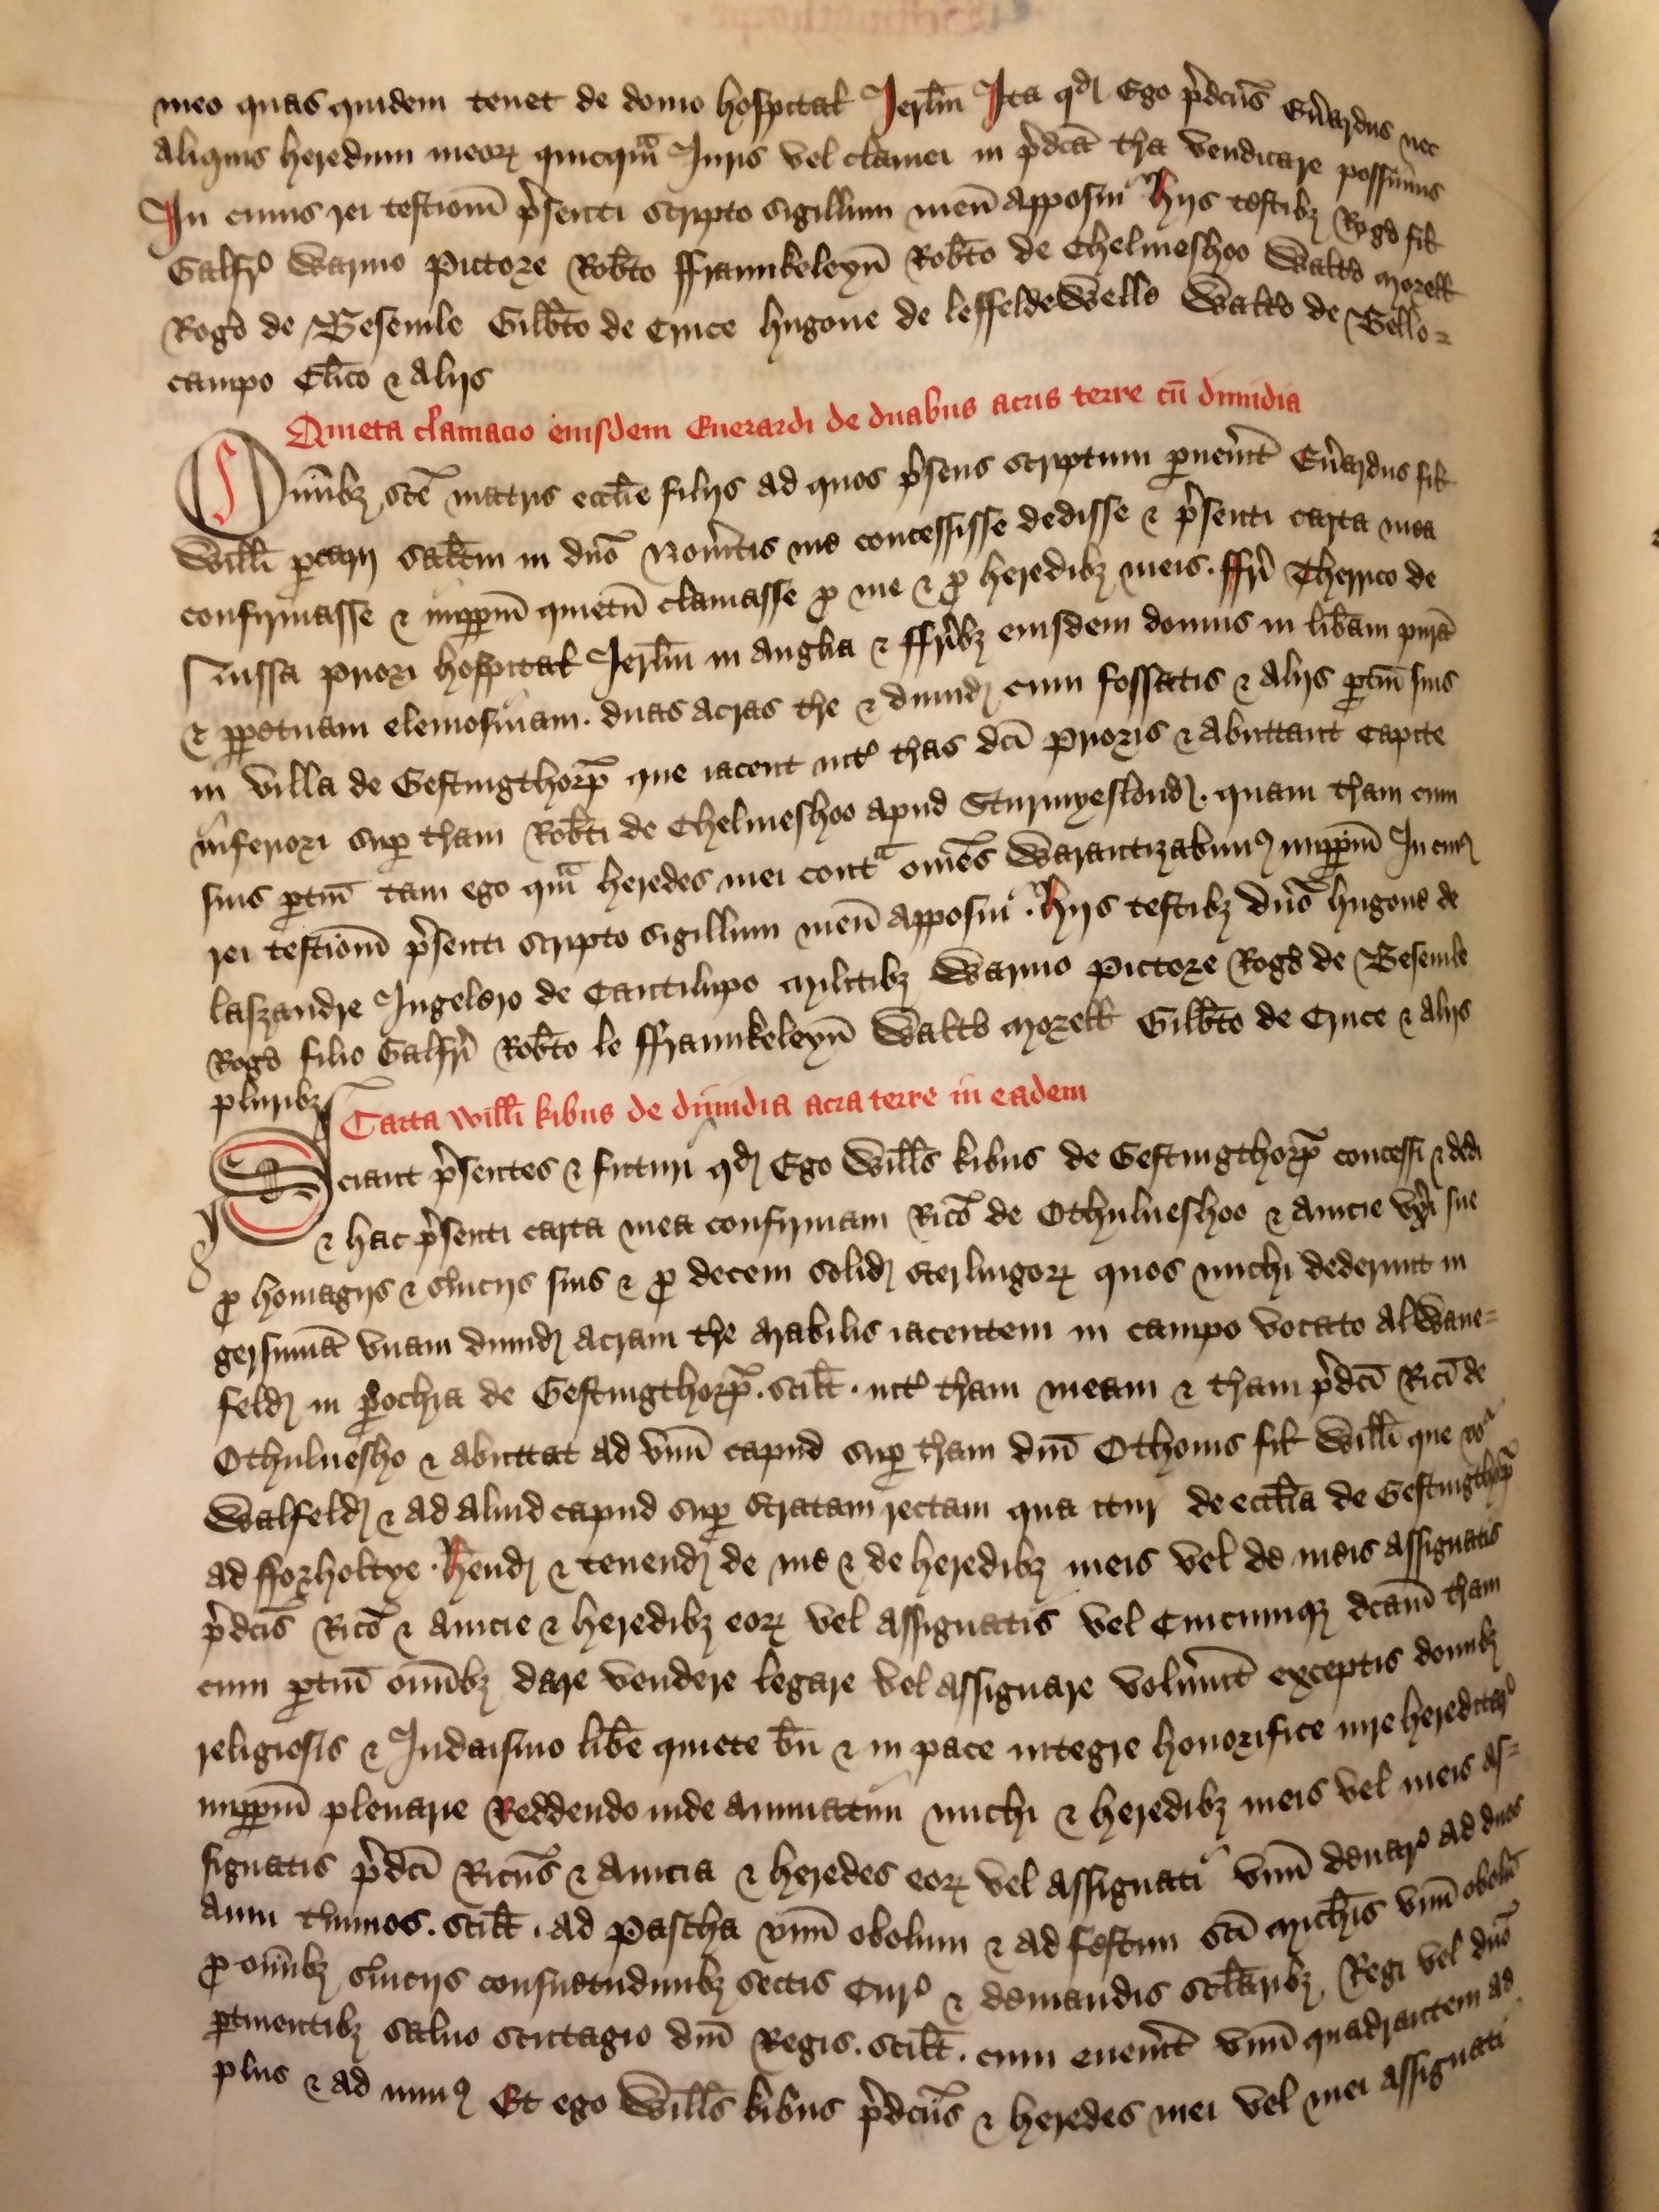 meo quas quidem tenet de domo hospital Jerlm̄ Ita qd Ego p̄dcūs Eu̓ardus nec
Aliquis heredum meoꝝ quicqm̄ Juris vel clamei in p̄dcā tr̄a vendicare possim̄us
In cuius rei testiom̄ p̄senti scripto sigillum meū apposui Hijs testibꝫ Rogo fil
Galfro Warino Pictore Rob̄to ffraunkeleyn̄ Rob̄to de Chelmeshoo Walto Morell
Rogo de Besemle Gilb̄to de Cruce hugone de leffeldewello Walto de Bello-
campo Cl̄ico ⁊ Alijs
Quieta clamacio eiusdem Euerardi de duabus acris terre cū dimidia
Om̄ibꝫ sc̄e matris eccl̄ie filijs ad quos p̄sens scriptum ꝑuen̓it Eu̓ardus fil
Will̄i saltm̄ in dn̄o Nou̓itis me concessisse dedisse ⁊ p̄senti carta mea
confirmasse ⁊ imꝑpm̄ quietū clamasse ꝓ me ⁊ ꝓ heredibꝫ meis. ffr̄i Therrico de
Nussa Priori hospital Jerlm̄ in anglia ⁊ ffr̄ibꝫ eiusdem domus in lib̄am purā
⁊ ꝑpetuam elemosinam. duas acras tr̄e ⁊ dimid cum fossatis ⁊ alijs ꝑtin̄ suis
in villa de Gestingthorp̄ que iacent int̓ tr̄as dc̄i Prioris ⁊ Abuttant capite
inferiori suꝑ tr̄am Rob̄ti de Chelmeshoo apud Sturmyeslond. quam tr̄am cum
suis ꝑtin̄ tam ego qm̄ heredes mei contᵃ om̄es Warantizabimꝰ imꝑpm̄ In cuiꝰ
rei testiom̄ p̄senti scripto sigillum meū apposui. Hijs testibꝫ dn̄o hugone de
laszandre Ingelero de Cantilupo militibꝫ Warino Pictore Rogo de Besemle
Rogo filio Galfri Rob̄to le ffraunkeleyn̄ Walto Morell Gilb̄to de Cruce ⁊ alijs
pluribꝫ
Carta will̄i kibus de dimidia acra terre in eadem
Sciant p̄sentes ⁊ futuri qd Ego Will̄s kibus de Gestingthorp̄ concessi ⁊ dedi
⁊ hac p̄senti carta mea confirmam Ric̄o de Othulueshoo ⁊ Amicie vx̓i sue
ꝓ homagijs ⁊ s̓uicijs suis ⁊ ꝓ decem solid sterlingoꝝ quos michi dederunt in
gersumā vnam dimid acram tr̄e arabilis iacentem in campo vocato Alwane-
feld in ꝑochia de Gestingthorp̄. scil̄t. int̓ tr̄am meam ⁊ tr̄am p̄dcī Ric̄i de
Othuluesho ⁊ abuttat ad vnū capud suꝑ tr̄am dn̄i Othonis fil Will̄i que voᵃ
Walfeld ⁊ ad aliud capud suꝑ stratam rectam qua itur de eccl̄ia de Gestingthorp̄
ad fforholtye. Hend ⁊ tenend de me ⁊ de heredibꝫ meis vel de meis assignatis
p̄dcīs Ric̄o ⁊ Amicie ⁊ heredibꝫ eoꝝ vel assignatis vel Cuicumqꝫ dcām tr̄am
cum ꝑtin̄ om̄ibꝫ dare vendere legare vel assignare volu̓int exceptis domibꝫ
religiosis ⁊ Judaismo lib̄e quiete bn̄ ⁊ in pace integre honorifice iure hereditar̓
imꝑpm̄ plenarie Reddendo inde annuatim michi ⁊ heredibꝫ meis vel meis as-
signatis p̄dcī Ricūs ⁊ Amicia ⁊ heredes eoꝝ vel assignati vnū denar̓ ad duos
anni t̓minos. scil̄t. ad Pascha vnū obolum ⁊ ad festum sc̄i Mich̄is vnū obolū
ꝓ om̄ibꝫ s̓uicijs consuetudinibꝫ sectis Cur̓ ⁊ demandis sc̄laribꝫ Regi vel dn̄o
ꝑtinentibꝫ saluo scutagio dn̄i Regis. scil̄t. cum euen̓it vnū quadrantem ad
plus ⁊ ad minꝰ Et ego Will̄s kibus p̄dcūs ⁊ heredes mei vel mei assignati